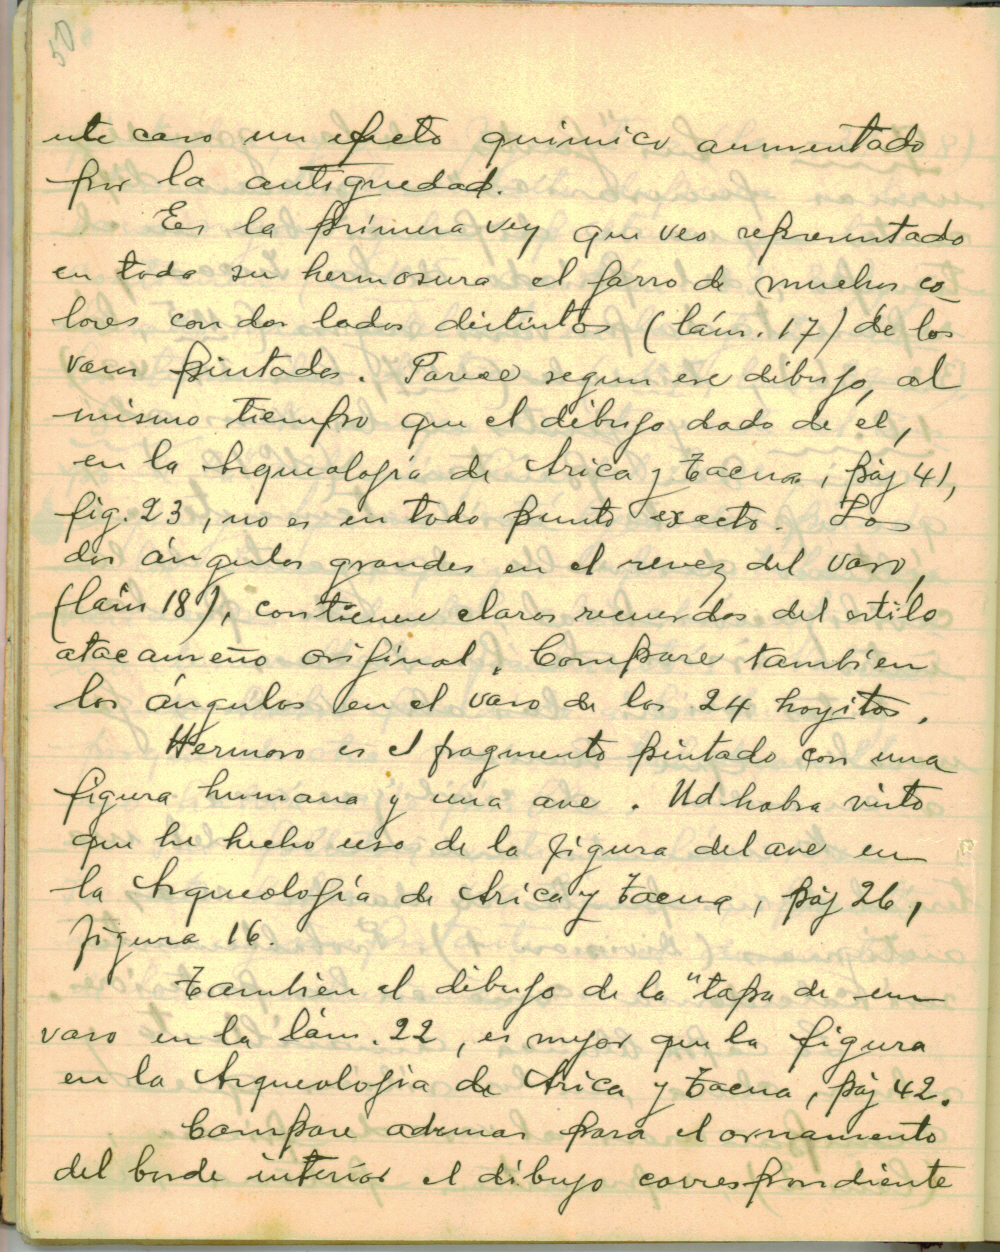 50
este caso un efecto quimico aumentado
por la antiguedad.
Es la primera vez que veo representado
en toda su hermosura el jarro de muchos co-
lores con dos lados distintos (lám. 17) de los
vasos pintados. Parece segun ese dibujo, al
mismo tiempo que el dibujo dado de el,
en la Arqueología de Arica y Tacna, páj 41,
fig. 23, no es en todo punto exacto. Los
dos ángulos grandes en el revez del vaso,
(lám 18), contienen claros recuerdos del estilo
atacameño orijinal. Compare tambien
los ángulos en el vaso de los 24 hoyitos.
Hermoso es el fragmento pintado con una
figura humana y una ave. Ud habra visto
que he hecho uso de la figura del ave en
la Arqueolojía de Arica y Tacna, páj 26,
figura 16.
Tambien el dibujo de la "tapa de un
vaso en la lám. 22, es mejor que la figura
en la Arqueolojia de Arica y Tacna, páj 42.
Compare ademas para el ornamento
del borde interior el dibujo correspondiente